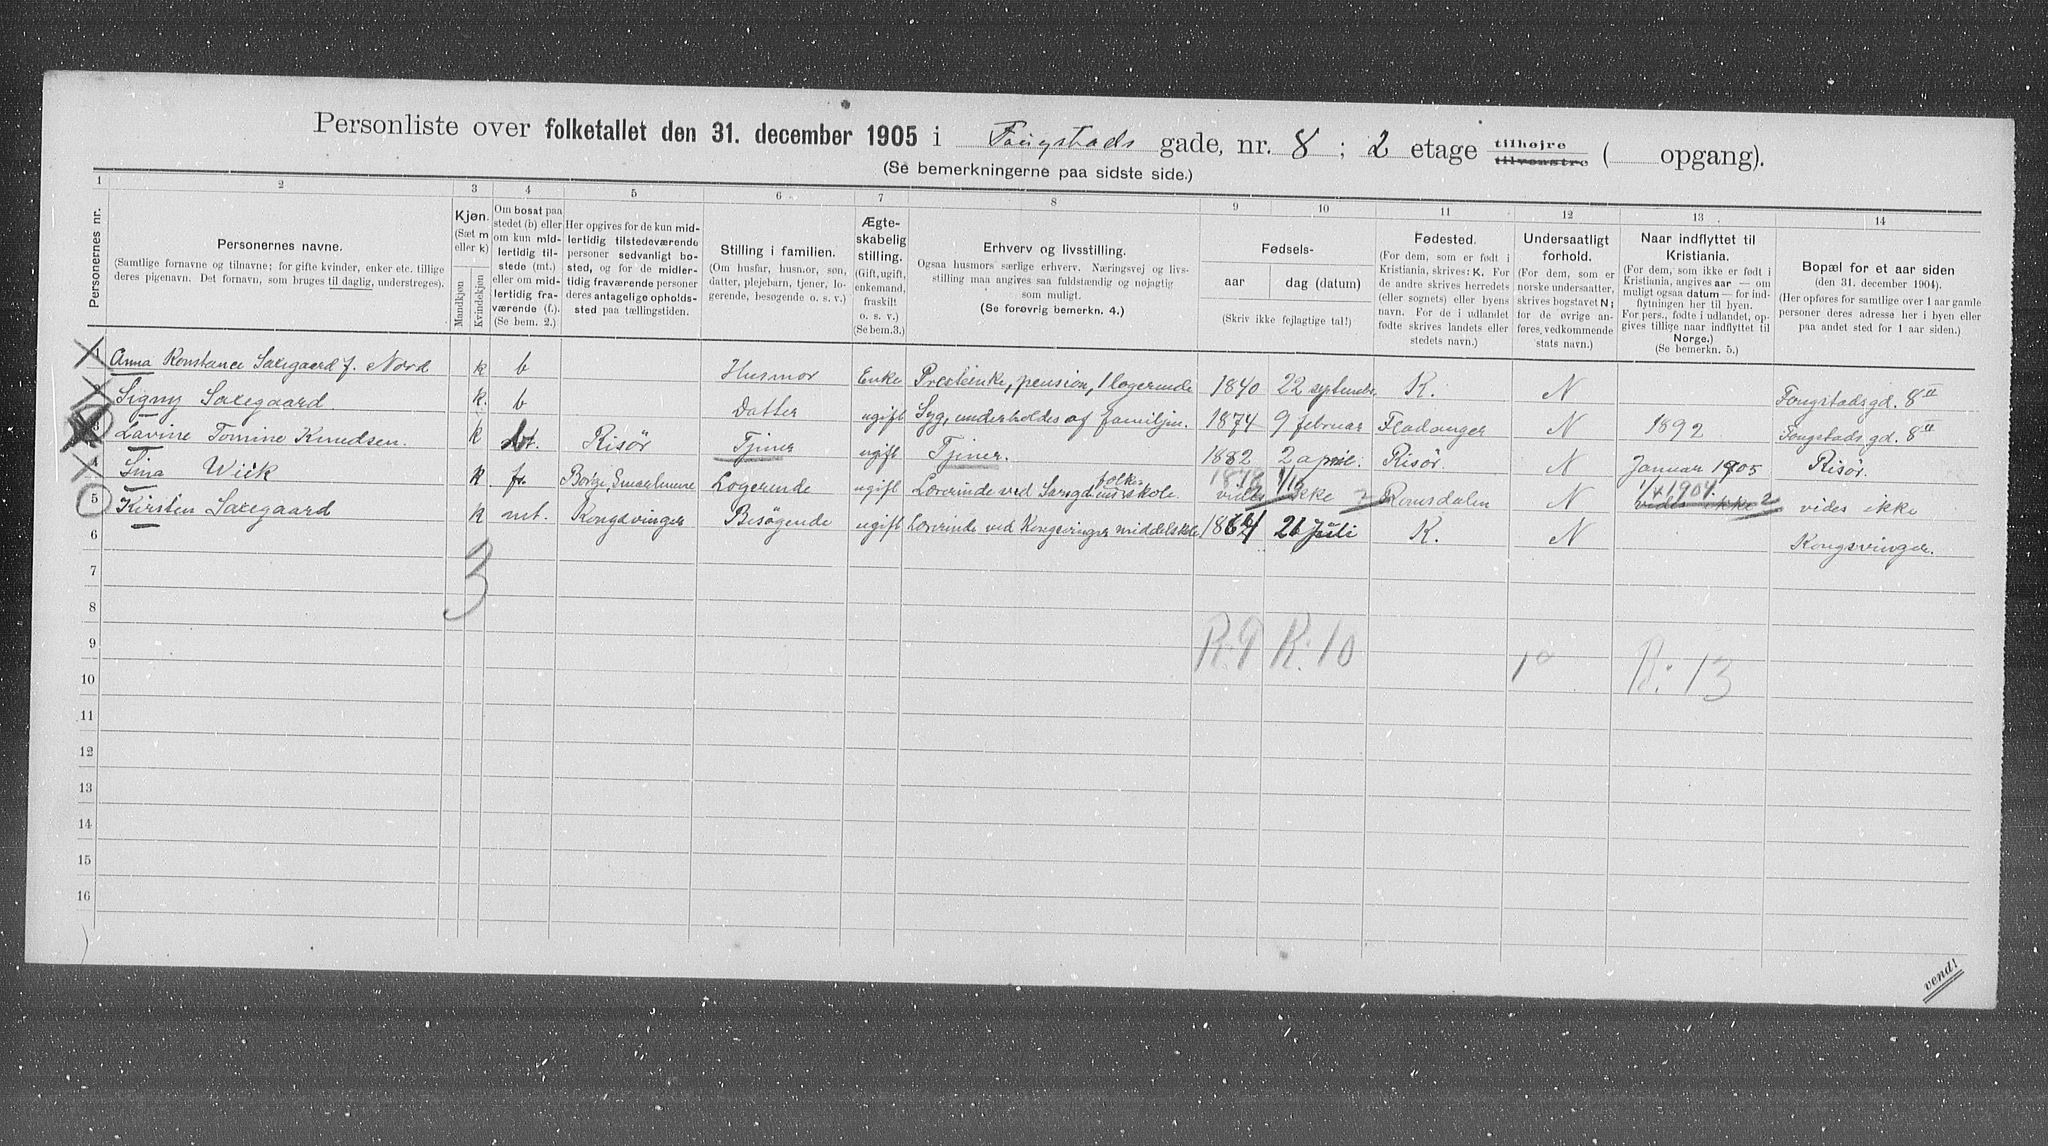 Personliste over folketallet den 31. december 1905 i Fougstads gade, nr. 8 ; 2 etage tilhøjre tilvenstre ( opgang).
(Se bemerkningerne paa sidste side.)
1 2 3 4 5 6 7 8 9 10 11 12 13 14
Personernes nr.
Personernes navne.
(Samtlige fornavne og tilnavne; for gifte kvinder, enker etc. tillige deres pigenavn. Det fornavn, som bruges til daglig, understreges).
Kjøn.
(Sæt m eller k)
Mandkjøn
Kvindekjøn
Om bosat paa stedet (b) eller om kun midlertidig tilstede (mt.) eller om midlertidig fraværende (f.).
(Se bem. 2.)
Her opgives for de kun midlertidig tilstedeværende personer sedvanligt bosted, og for de midlertidig fraværende personer deres antagelige opholdssted paa tællingstiden.
Stilling i familien.
(Om husfar, husmor, søn, datter, plejebarn, tjener, logerende, besøgende o. s. v.)
Ægteskabelig stilling.
(Gift, ugift, enkemand, fraskilt o. s. v.)
(Se bem. 3.)
Erhverv og livsstilling.
Ogsaa husmors særlige erhverv. Næringsvej og livsstilling maa angives saa fuldstændig og nøjagtig som muligt.
(Se forøvrig bemerkn. 4.)
Fødsels-
aar
dag (datum)
(Skriv ikke fejlagtige tal!)
Fødested.
(For dem, som er født i Kristiania, skrives: K. For de andre skrives herredets (eller sognets) eller byens navn. For de i udlandet fødte skrives landets eller stedets navn.)
Undersaatligt forhold.
(For dem, som er norske undersaatter, skrives bogstavet N; for de øvrige anføres, vedkommende stats navn.)
Naar indflyttet til Kristiania.
(For dem, som ikke er født i Kristiania, angives aar — om muligt ogsaa datum — for indflytningen her til byen. For pers., fødte i udlandet, opgives tillige naar indflyttet til Norge.)
(Se bemerkn. 5.)
Bopæl for et aar siden
(den 31. december 1904).
(Her opføres for samtlige over 1 aar gamle personer deres adresse her i byen eller paa andet sted for 1 aar siden.)
1 Anna Konstance Saxegaard f. Nord k b Husmor Enke Presteenke, pension, 1 logerende 1840 22 septembr. K. N Fougstadsgd. 8 II
2 Signy Saxegaard. k. b Datter ugift Syg, underholdes af familjen. 1874 9 februar Fladanger N 1892 Fougstads gd. 8 II
3 Lavine Tomine Knudsen. k bt. Risör Tjener ugift Tjener. 1882 2 april. Risör. N Januar 1905 Risör.
4 Wiik k fr Borge, Smaalenene Logerende ugift Lærerinde ved Sarsgd. folkeskole. 1878 1/16 vides ikke ? Romsdalen N 1/4 1904. vides ikke 2 vides ikke
5 Kirsten Saxegaard k mt. Kongsvinger Besögende ugift Lærerinde ved Kongsvinger middelskole 1864 21 Juli K. N Kongsvinger.
6
7
3
8
9
R: 9 K: 10
10
B: 13
11
12
13
14
15
16
vend!